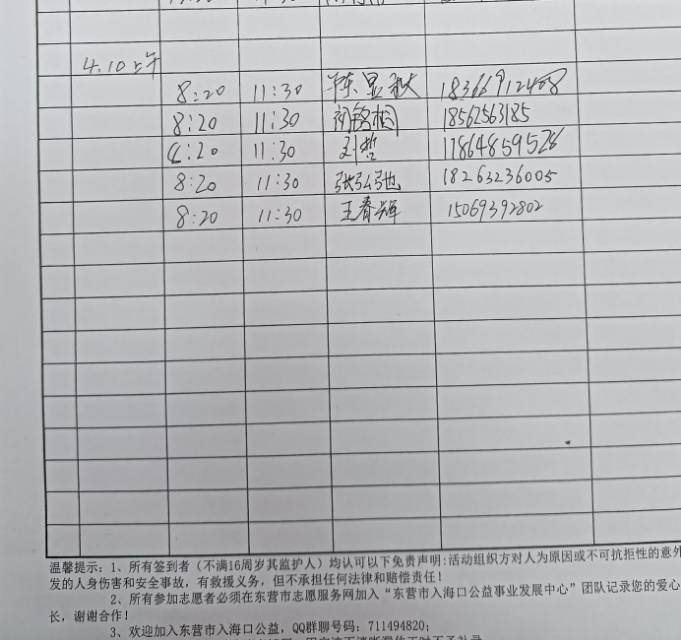 4.10上午
8:20 11:30 陈显秋 18366912408
8:20 11:30 18562563185
8:20 11:30 刘哲 17864859528
8:20 11:30 张弘弛 18263236005
8:20 11:30 王春辉 15069392802
温馨提示：1、所有签到者（不满16周岁其监护人）均认可以下免责声明:活动组织方对人为原因或不可抗拒性的意外
发的人身伤害和安全事故，有救援义务，但不承担任何法律和赔偿责任！
2、所有参加志愿者必须在东营市志愿服务网加入“东营市入海口公益事业发展中心”团队记录您的爱心
长，谢谢合作！
3、欢迎加入东营市入海口公益，QQ群聊号码：711494820；